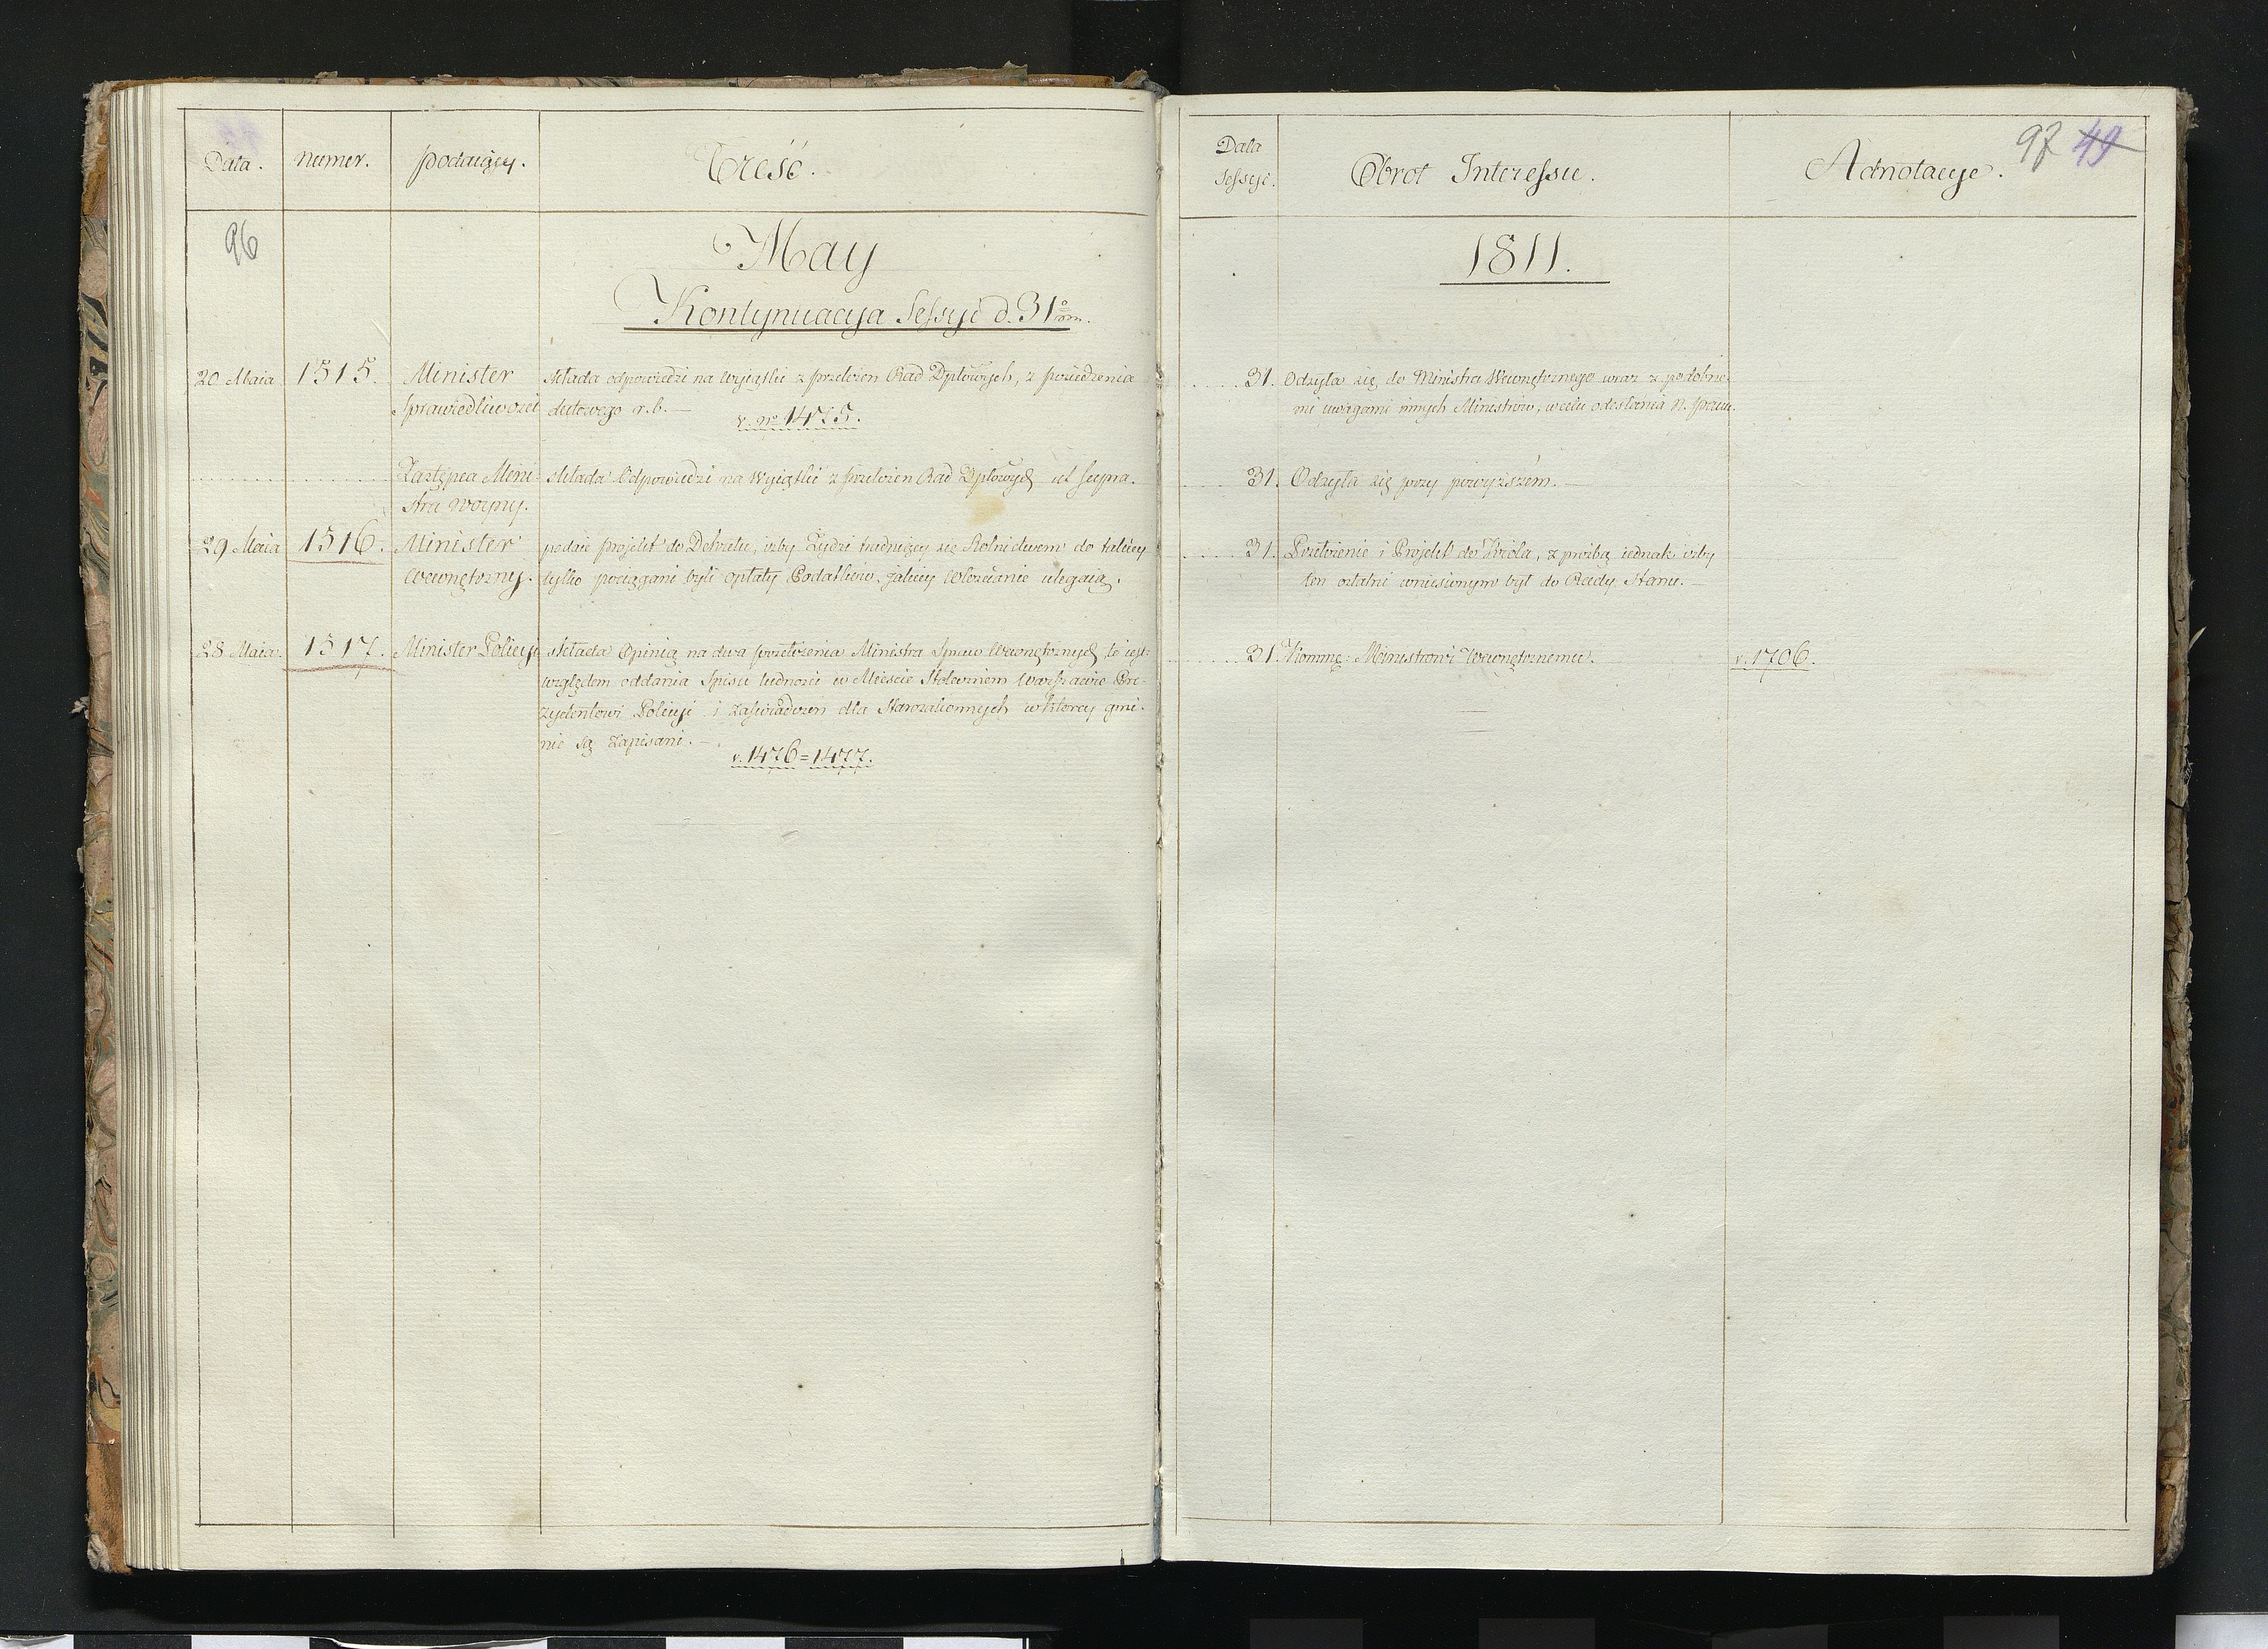 Data. numer. podaiący. Treść.
96
May
Kontynuacyja Sessyi d. 31° m.
20 Maia 1515. Minister składa odpowiedzi na wyiątki z przełożen Rad Dptowych, z posiedzenia
Sprawiedliwości dutowego r. b. —
v. nro 1475.
Zastępca Mini- składa Odpowiedzi na Wyiątki z przełożen Rad Dptowych ut supra.
stra woyny.
29 Maia 1516. Minister podaie projekt do Dekretu, iżby Żydzi trudniący się Rolnictwem do takiey
wewnętrzny. tylko pociągani byli opłaty Podatków, jakiey Włościanie ulegaią.
28 Maia. 1517. Minister Policyi składa Opinią na dwa przełożenia Ministra Spraw Wewnętrznych to iest:
względem oddania Spisu ludności w Mieście Stołecznem Warszawie Pre-
zydentowi Policyi i zaświadczen dla Starozakonnych w ktorey gmi-
nie są zapisani. —
v. 1476 = 1477.
Data
Sessyi. Obrot Interessu. Adnotacyje. 97 49
1811.
31. Odsyła się do Ministra Wewnętrznego wraz z podobne-
mi uwagami innych Ministrów, w celu odesłania N. Panu.
31. Odsyła się przy powyższém. —
31. Przełożenie i Projekt do Króla, z prośbą iednak iżby
ten ostatni wniesionym był do Rady Stanu. —
31. Ministrowi Wewnętrznemu. v. 1706.